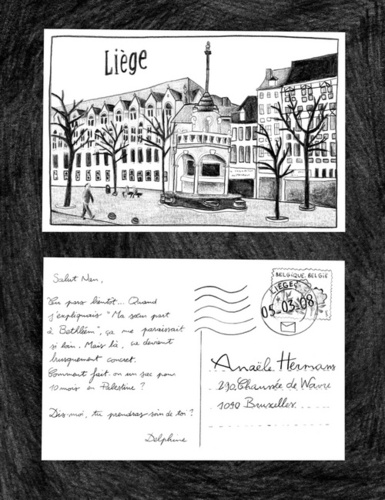 Liège
Salut Nan,
Tu pars bientôt... Quand
j'expliquais "Ma sœur part
à Bethléem", ça me paraissait
si loin. Mais là, ça devient
brusquement concret.
Comment fait-on un sac pour
10 mois en Palestine ?
Dis-moi, tu prendras soin de toi ?
Delphine
BELGIQUE. BELGIE
LIEGE
05-03-08
Anaële Hermans
210, Chaussée de Wavre
1050 Bruxelles